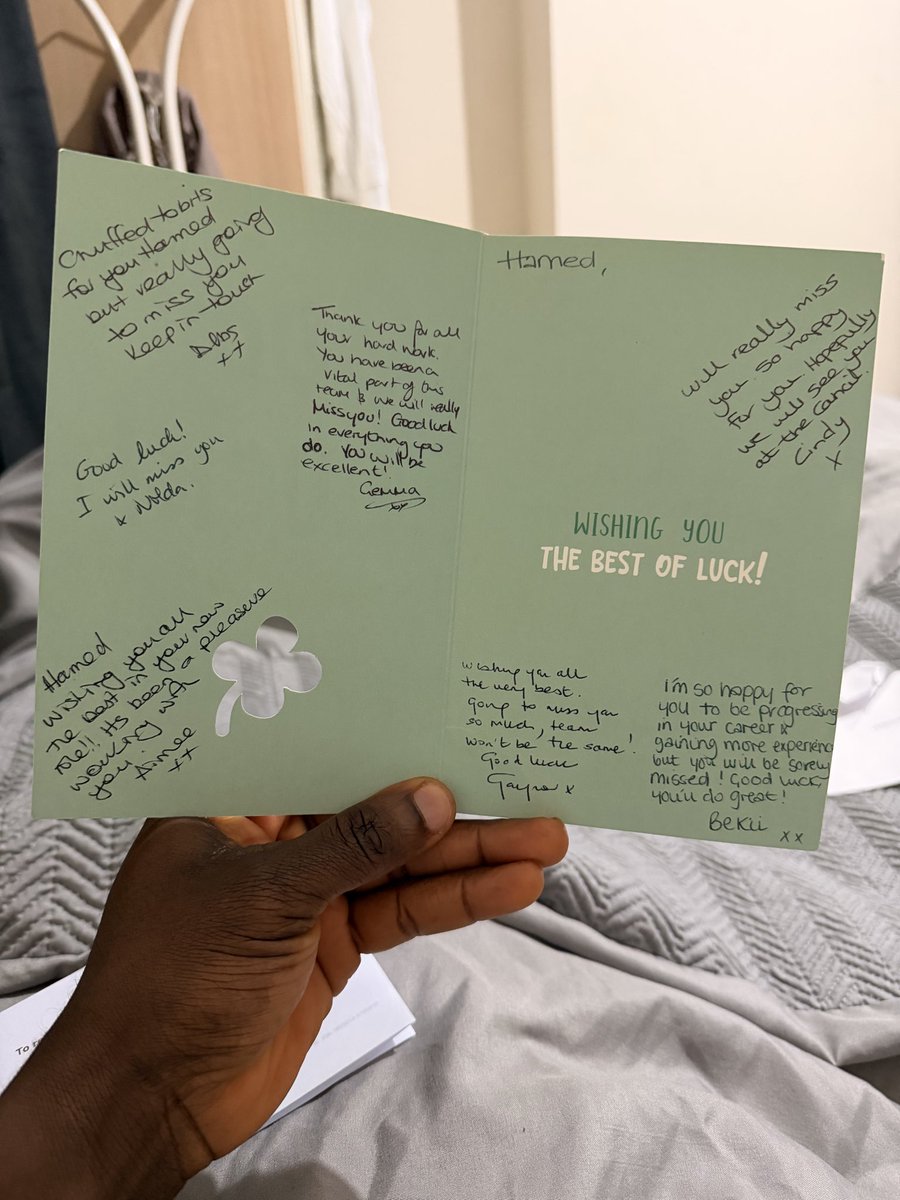 Chuffed to bits
for you Hamed
but really going
to miss you
keep in touch
Debs
xx
Thank you for all
your hard work.
You have been a
vital part of this
team & we will really
Miss you! Good luck
in everything you
do. You will be
excellent!
Gemma
xx
Good luck!
I will miss you
x Nolda.
Hamed
Wishing you all
the best in your new
role!! Its been a pleasure
working with
you.
Aimee
xx
Hamed,
Will really miss
you so happy
for you Hopefully
we will see you
at the
Cindy
x
WISHING YOU
THE BEST OF LUCK!
wishing you all
the very best.
Going to miss you
so much, team
won't be the same!
Good luck
Gaynor x
i'm so happy for
you to be progressing
in your career &
gaining more experience
but you will be sorely
missed! Good luck,
you'll do great!
Bekii
x x
To